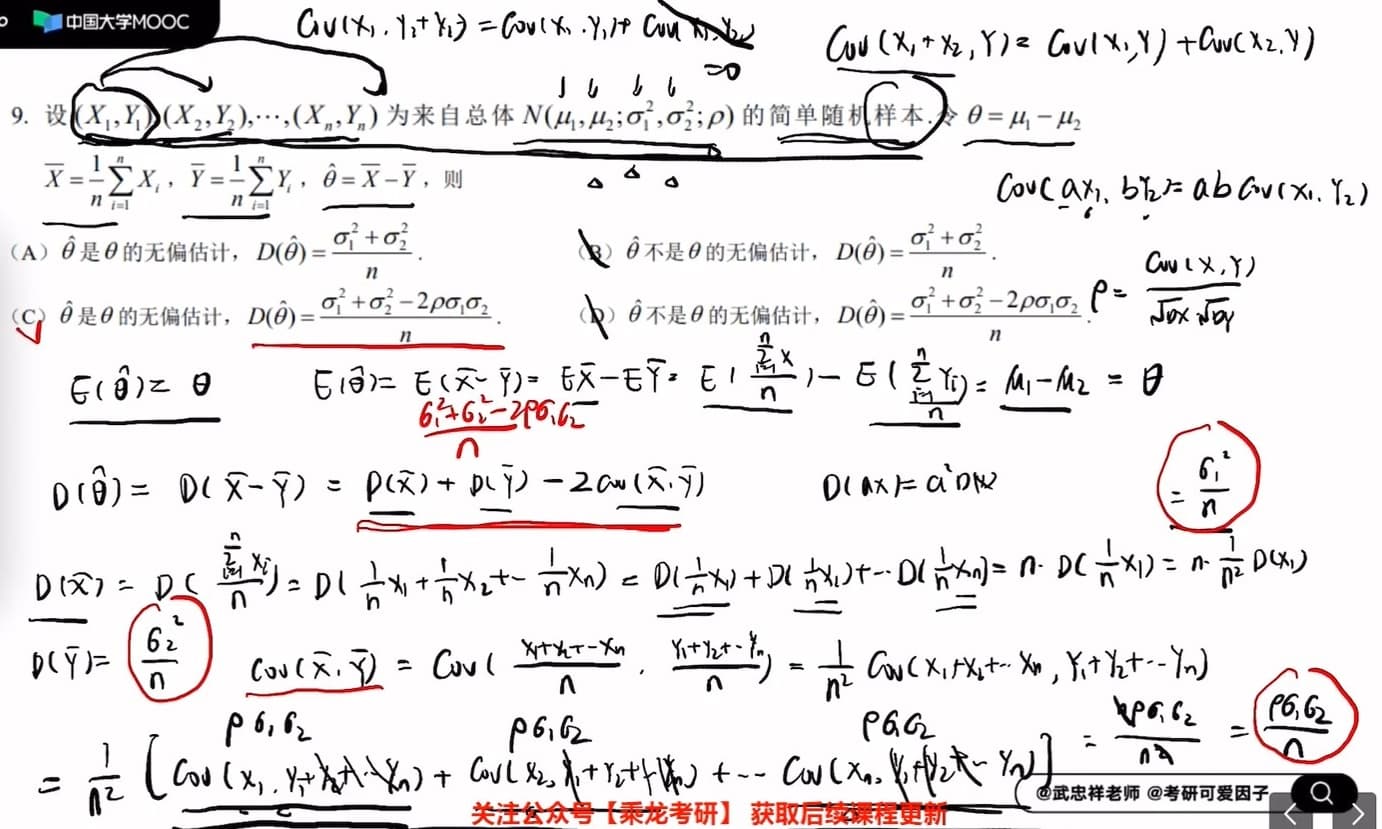 中国大学MOOC
Cov(X₁, Y₂+Y₁) = Cov(X₁, Y₁) + Cov(X₁, Y₂) = 0
Cov(X₁+X₂, Y) = Cov(X₁, Y) + Cov(X₂, Y)
9. 设(X₁,Y₁),(X₂,Y₂),⋯,(Xₙ,Yₙ)为来自总体 N(μ₁,μ₂;σ₁²,σ₂²;ρ) 的简单随机样本. 令 θ = μ₁ − μ₂
X̄ = 1/n ∑ᵢ₌₁ⁿ Xᵢ，Ȳ = 1/n ∑ᵢ₌₁ⁿ Yᵢ，θ̂ = X̄ − Ȳ，则
Cov(aX₁, bY₂) = ab Cov(X₁, Y₂)
（A）θ̂ 是 θ 的无偏估计，D(θ̂) = (σ₁²+σ₂²)/n .
（B）θ̂ 不是 θ 的无偏估计，D(θ̂) = (σ₁²+σ₂²)/n .
（C）θ̂ 是 θ 的无偏估计，D(θ̂) = (σ₁²+σ₂²−2ρσ₁σ₂)/n .
（D）θ̂ 不是 θ 的无偏估计，D(θ̂) = (σ₁²+σ₂²−2ρσ₁σ₂)/n .
ρ = Cov(X,Y)/(√DX √DY)
E(θ̂) = θ
E(θ̂) = E(X̄−Ȳ) = EX̄ − EȲ = E(∑ᵢ₌₁ⁿ X/n) − E(∑ᵢ₌₁ⁿ Yᵢ/n) = μ₁−μ₂ = θ
(σ₁²+σ₂²−2ρσ₁σ₂)/n
D(θ̂) = D(X̄−Ȳ) = D(X̄) + D(Ȳ) − 2Cov(X̄,Ȳ)
D(aX) = a²DX
= σ₁²/n
D(X̄) = D(∑ᵢ₌₁ⁿ Xᵢ/n) = D(1/n X₁ + 1/n X₂ + ⋯ 1/n Xₙ) = D(1/n X₁) + D(1/n X₂) + ⋯ D(1/n Xₙ) = n·D(1/n X₁) = n·1/n² D(X₁)
D(Ȳ) = σ₂²/n
Cov(X̄,Ȳ) = Cov((X₁+X₂+⋯Xₙ)/n, (Y₁+Y₂+⋯Yₙ)/n) = 1/n² Cov(X₁+X₂+⋯Xₙ, Y₁+Y₂+⋯Yₙ)
ρσ₁σ₂ ρσ₁σ₂ ρσ₁σ₂
= 1/n² [Cov(X₁, Y₁+Y₂+⋯Yₙ) + Cov(X₂, Y₁+Y₂+⋯Yₙ) + ⋯ Cov(Xₙ, Y₁+Y₂+⋯Yₙ)] = nρσ₁σ₂/n² = ρσ₁σ₂/n
@武忠祥老师 @考研可爱因子
关注公众号【乘龙考研】 获取后续课程更新